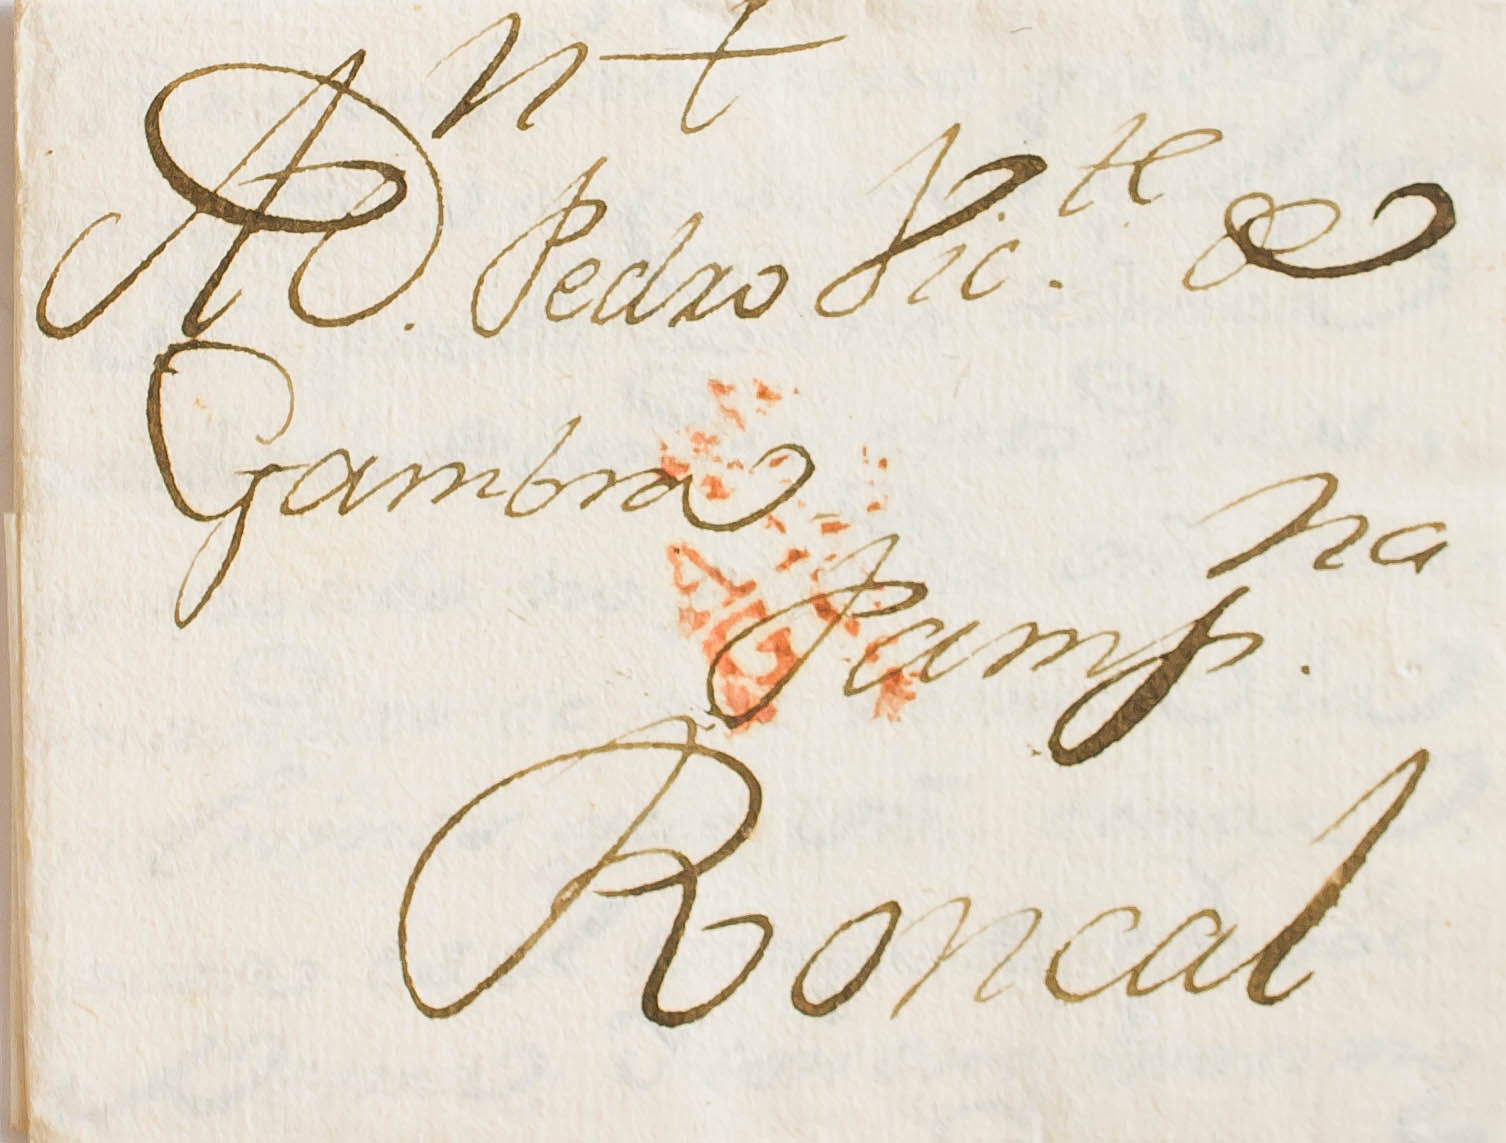 n t
A D. Pedro Vic.te de
Gambra
Pamp.na
Roncal